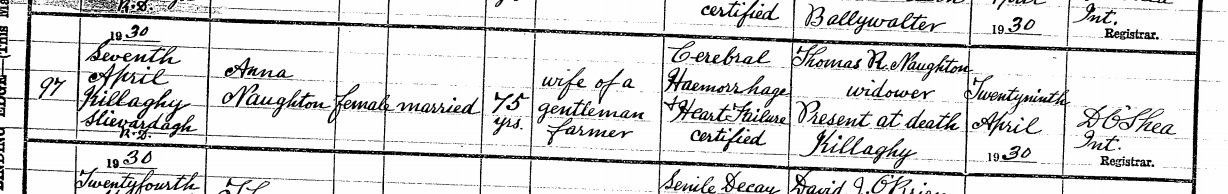 R.D.
certified
Ballywalter
1930
Int.
Registrar.
97
1930
Seventh
April
Killaghy
Slievardagh
R.D.
Anna
Naughton
female
married
75
yrs.
wife of a
gentleman
farmer
Cerebral
Haemorrhage
& Heart Failure
certified
Thomas R. Naughton
widower
Present at death
Killaghy
Twentyninth
April
1930
D O'Shea
Int.
Registrar.
1930
Twentyfourth
Senile Decay
David J. O'Brien